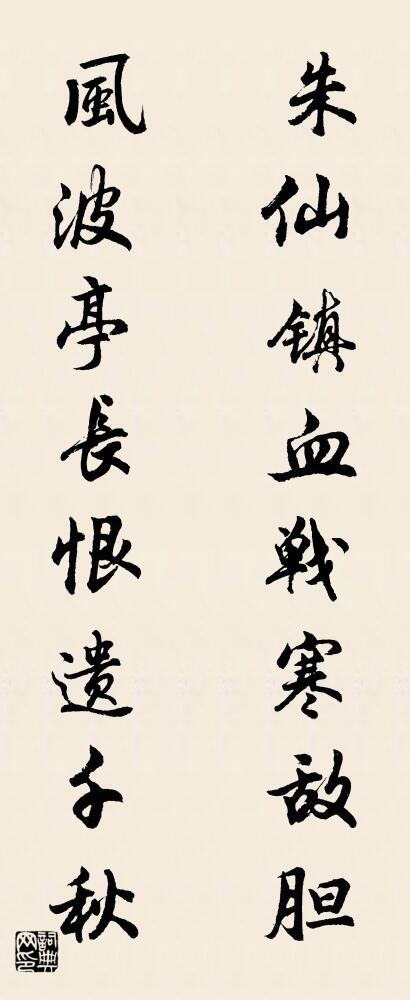 朱仙镇血戦寒敌胆
風波亭長恨遗千秋
詞典网印